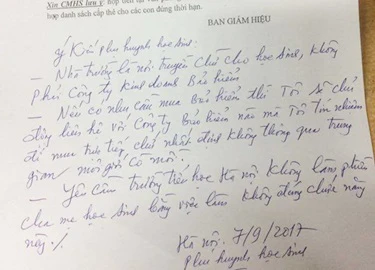 Xin CMHS lưu ý: nộp tiền tại văn ph
hợp danh sách cấp thẻ cho các con đúng thời hạn.
BAN GIÁM HIỆU
Ý Kiến phụ huynh học sinh:
- Nhà trường là nơi truyền chữ cho học sinh, không
phải Công ty kinh doanh Bảo hiểm
- Nếu có nhu cầu mua Bảo hiểm thì Tôi sẽ chủ
động liên hệ với Công ty Bảo hiểm nào mà Tôi tín nhiệm
để mua trực tiếp chứ nhất định không thông qua trung
gian môi giới cò mồi.
- Yêu cầu trường tiểu học Hà nội không làm phiền
cha mẹ học sinh bằng việc làm không đúng chức năng
này ./.
Hà nội. 7/9/2017
Phụ huynh học sinh